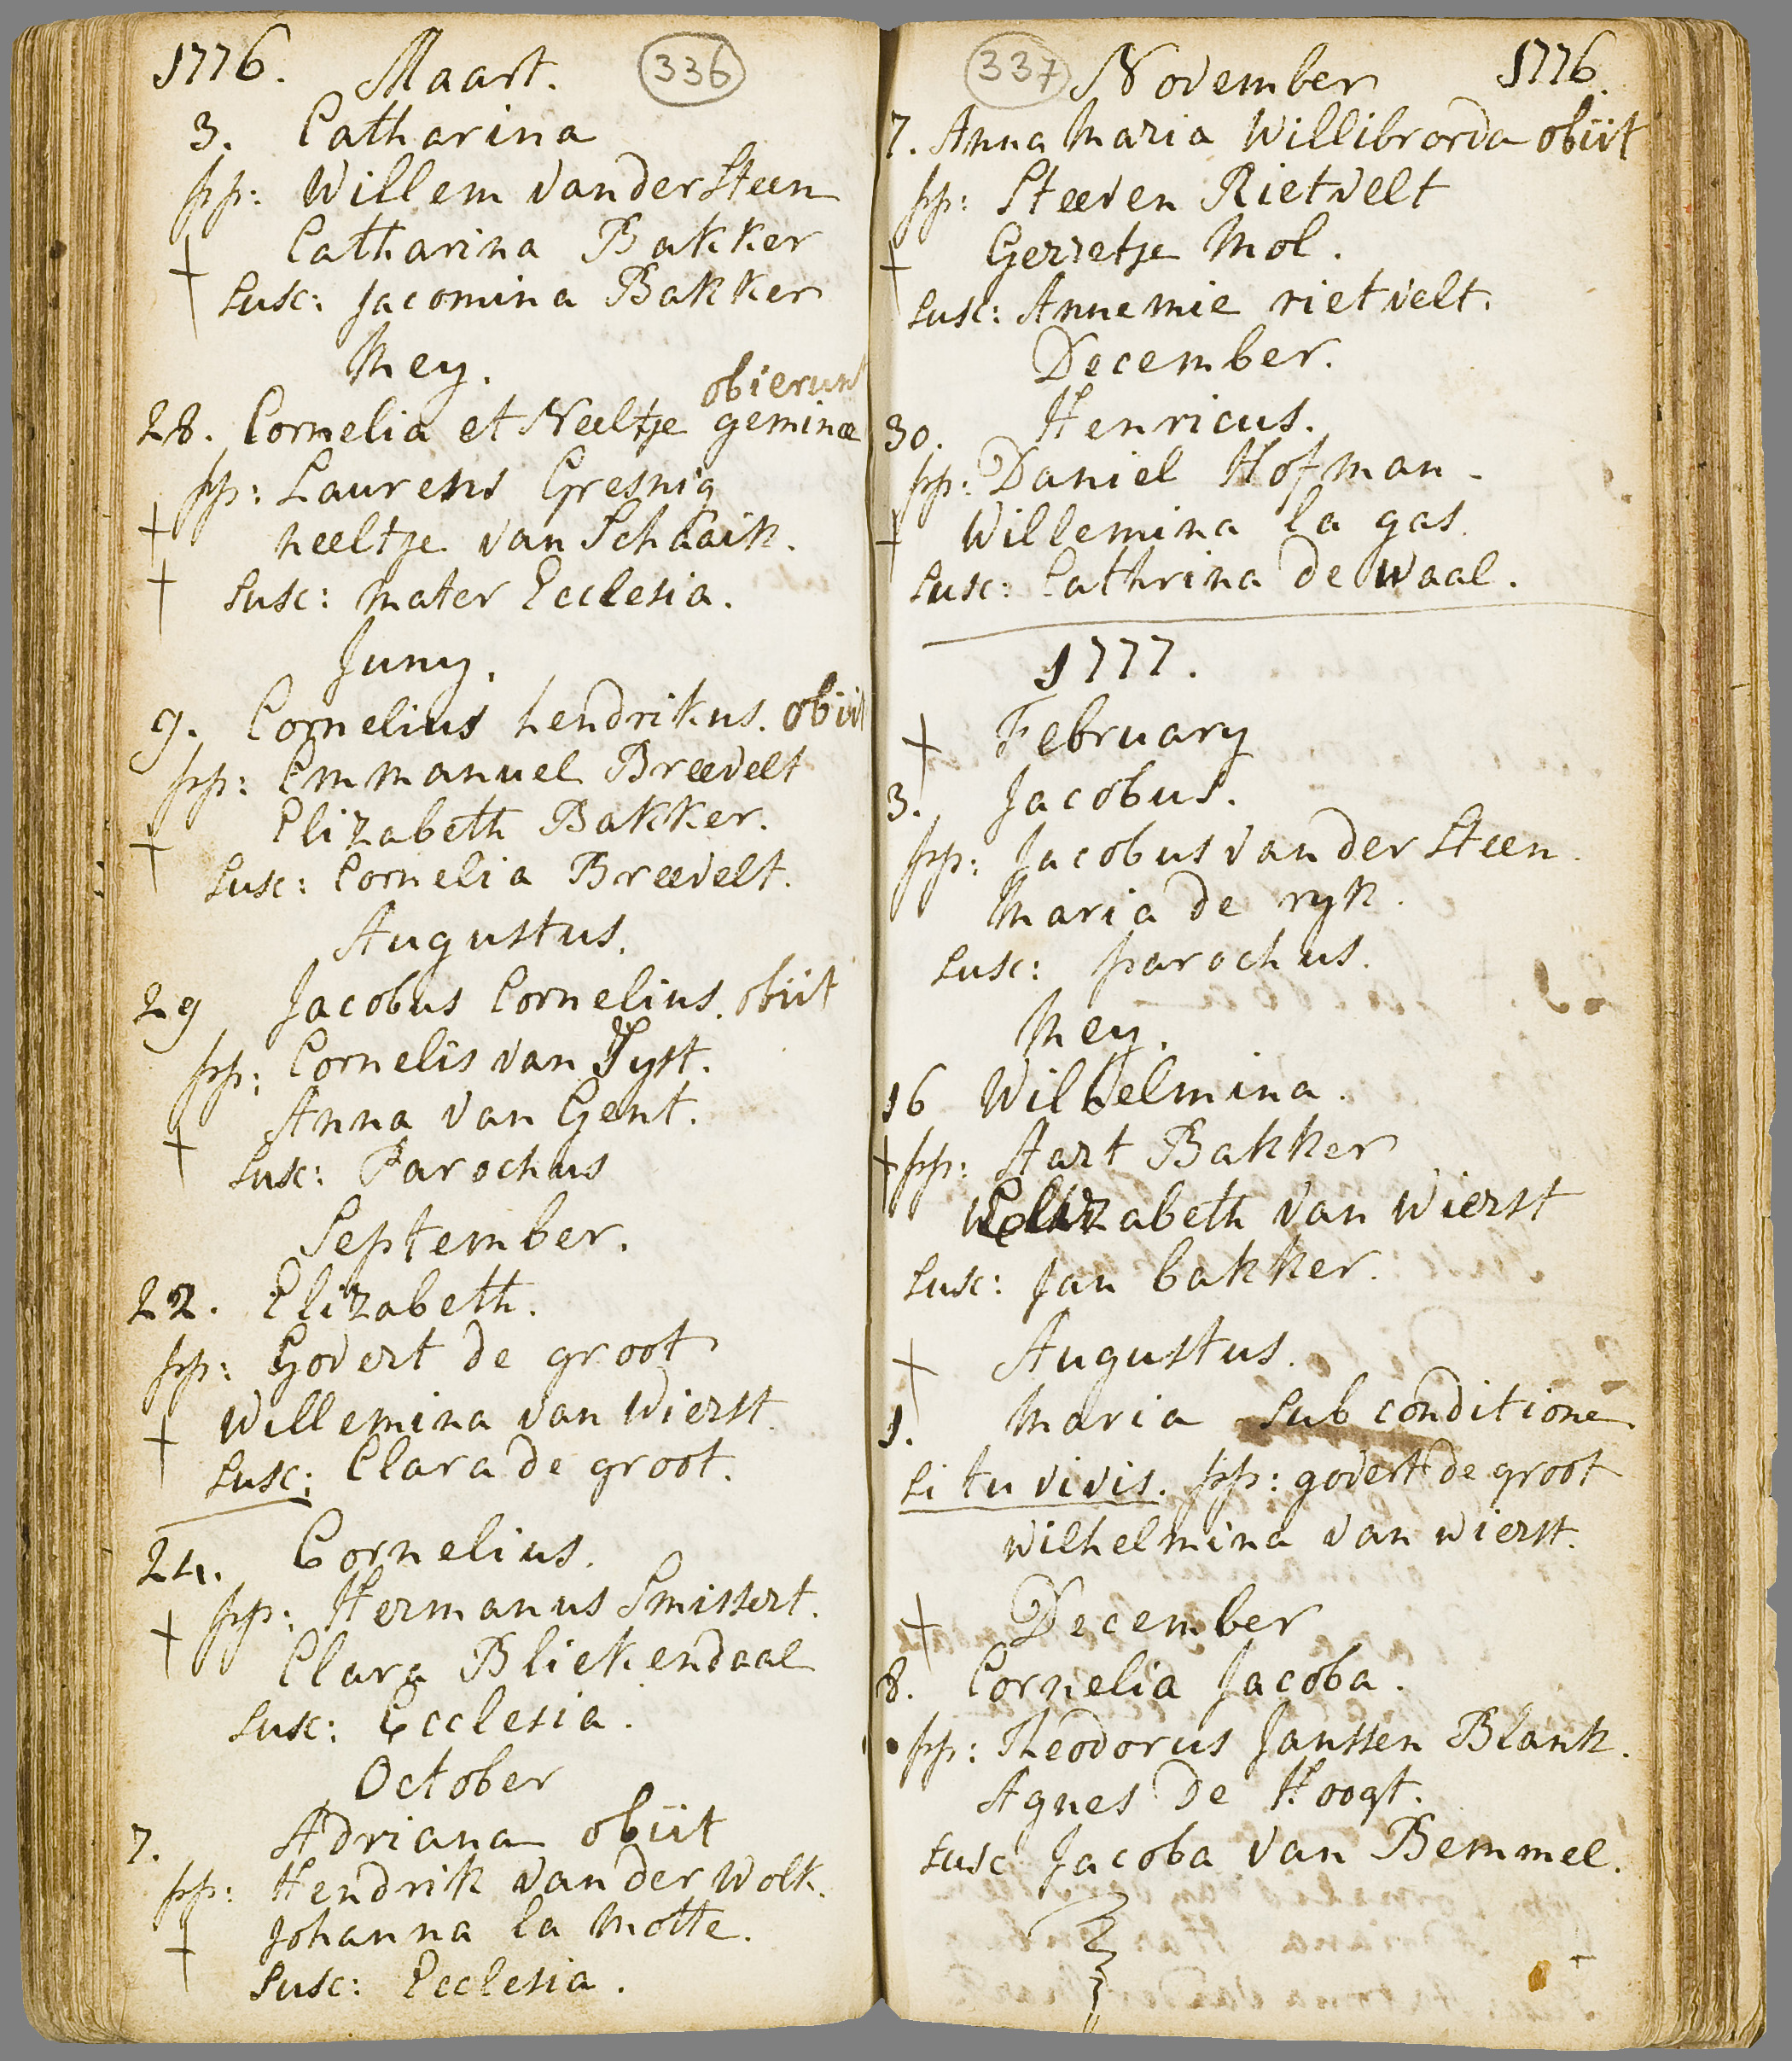 1776. Maart. 336
3. Catharina
pp: Willem van der Steen
Catharina Bakker
Susc: Jacomina Bakker
Mey.
obierunt
28. Cornelia et Neeltje geminæ
pp: Laurens Gresnig
neeltje van Schaaik.
Susc: Mater Ecclesia.
Juny.
9. Cornelius hendrikus. obiit
pp: Emmanuel Breevelt
Elizabeth Bakker.
Susc: Cornelia Breevelt.
Augustus.
29 Jacobus Cornelius. obiit
pp: Cornelis van Tyst.
Anna van Gent.
Susc: Parochus
September.
22. Elizabeth.
pp: Govert de groot
Willemina van Wierst.
Susc: Clara de groot.
24. Cornelius.
pp: Hermanus Smissert.
Clara Bliekendaal
Susc: Ecclesia.
October
7. Adriana obiit
pp: Hendrik van der Wolk.
Johanna la Motte.
Susc: Ecclesia.
337 November 1776.
7. Anna Maria Willibrorda obiit
pp: Steeven Rietvelt
Gerretje Mol.
Susc: Annemie rietvelt.
December.
30. Henricus.
pp: Daniel Hofman
Willemina la gas.
Susc: Cathrina de Waal.
1777.
February
3. Jacobus.
pp: Jacobus van der Steen.
Maria de ryk.
Susc: parochus.
Mey.
16 Wilhelmina.
pp: Aart Bakker
Elizabeth van Wierst
Susc: Jan bakker.
Augustus.
1. Maria sub conditione
si tu vivis. pp: govert de groot
wilhelmina van wierst.
December
8. Cornelia Jacoba.
pp: Theodorus Janssen Blank.
Agnes de Hoogt.
Susc Jacoba van Bemmel.